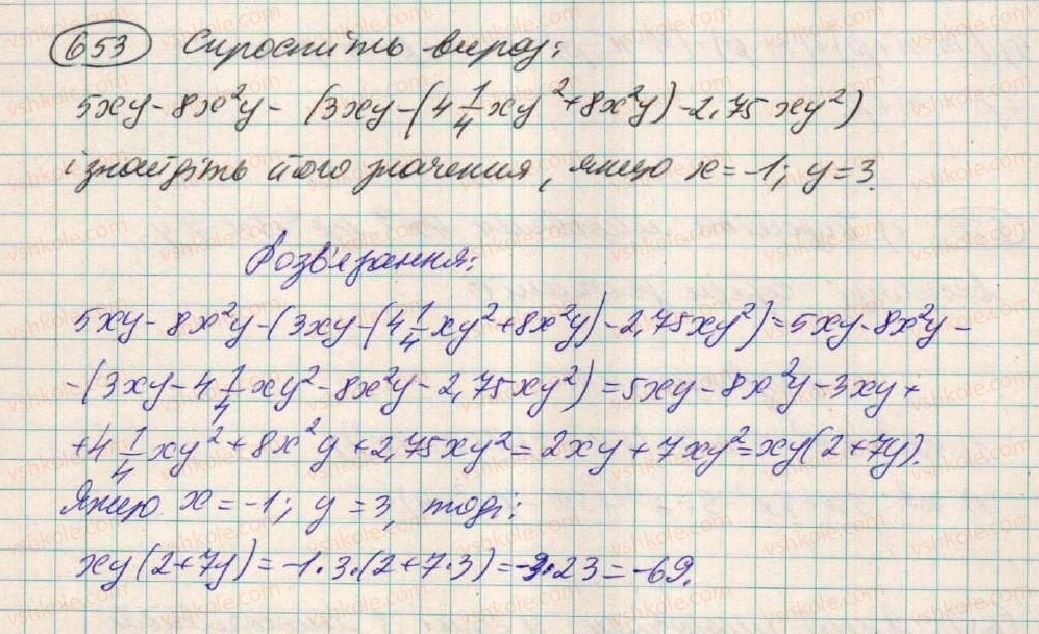 653 Спростіть вираз:
5xy - 8x²y - (3xy - (4 1/4 xy² + 8x²y) - 2,75 xy²)
і знайдіть його значення, якщо x = -1; y = 3.
Розв'язання:
5xy - 8x²y - (3xy - (4 1/4 xy² + 8x²y) - 2,75xy²) = 5xy - 8x²y -
- (3xy - 4 1/4 xy² - 8x²y - 2,75xy²) = 5xy - 8x²y - 3xy +
+ 4 1/4 xy² + 8x²y + 2,75xy² = 2xy + 7xy² = xy(2 + 7y).
Якщо x = -1; y = 3, тоді:
xy(2 + 7y) = -1 · 3 · (2 + 7 · 3) = -3 · 23 = -69.